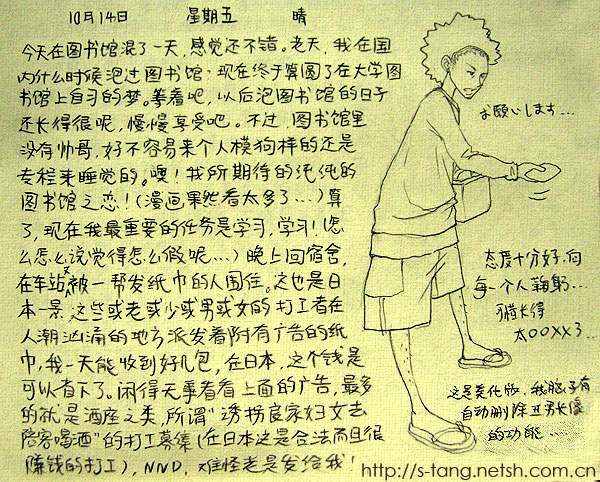 10月14日 星期五 晴
今天在图书馆混了一天，感觉还不错。老天，我在国
内什么时候泡过图书馆；现在终于算圆了在大学图
书馆上自习的梦。等着吧，以后泡图书馆的日子
还长得很呢，慢慢享受吧。不过 图书馆里
没有帅哥，好不容易来个人模狗样的还是
专程来睡觉的。噢！我所期待的纯纯的
图书馆之恋！（漫画果然看太多了…）算
了，现在我最重要的任务是学习，学习！（怎
么怎么说觉得怎么假呢…）晚上回宿舍，
在车站又被一帮发纸巾的人围住。这也是日
本一景，这些或老或少或男或女的打工者在
人潮汹涌的地方派发着附有广告的纸
巾，我一天能收到好几包，在日本，这个钱是
可以省下了。闲得无事看看上面的广告，最多
的就是酒座之类，所谓“诱拐良家妇女去
陪客喝酒”的打工募集（在日本这是合法而且很
赚钱的打工），NND，难怪老是发给我！
お願いします…
态度十分好，向
每一个人鞠躬…
可惜长得
太OOXX了…
这是美化版，我脑子有
自动删除丑男长像
的功能…
http://s-tang.netsh.com.cn